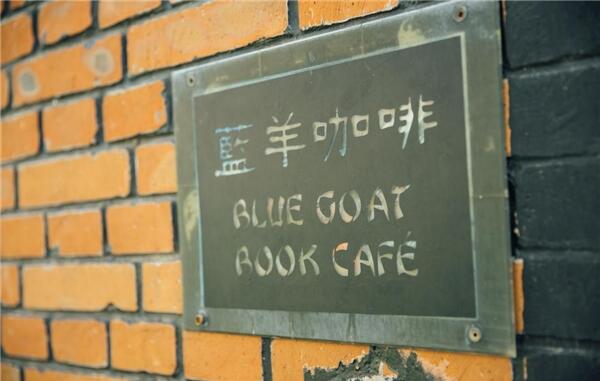 藍羊咖啡
BLUE GOAT
BOOK CAFÉ